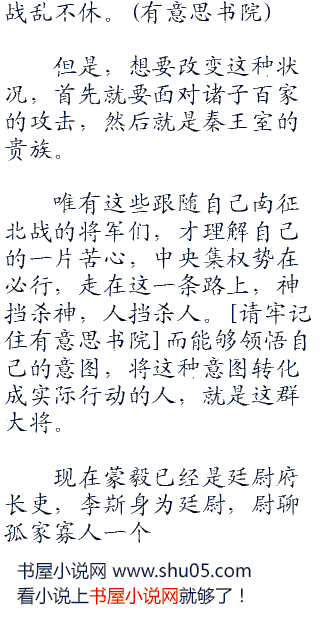 战乱不休。(有意思书院)
但是，想要改变这种状
况，首先就要面对诸子百家
的攻击，然后就是秦王室的
贵族。
唯有这些跟随自己南征
北战的将军们，才理解自己
的一片苦心，中央集权势在
必行，走在这一条路上，神
挡杀神，人挡杀人。[请牢记
住有意思书院]而能够领悟自
己的意图，将这种意图转化
成实际行动的人，就是这群
大将。
现在蒙毅已经是廷尉府
长吏，李斯身为廷尉，尉聊
孤家寡人一个
书屋小说网 www.shu05.com
看小说上书屋小说网就够了！